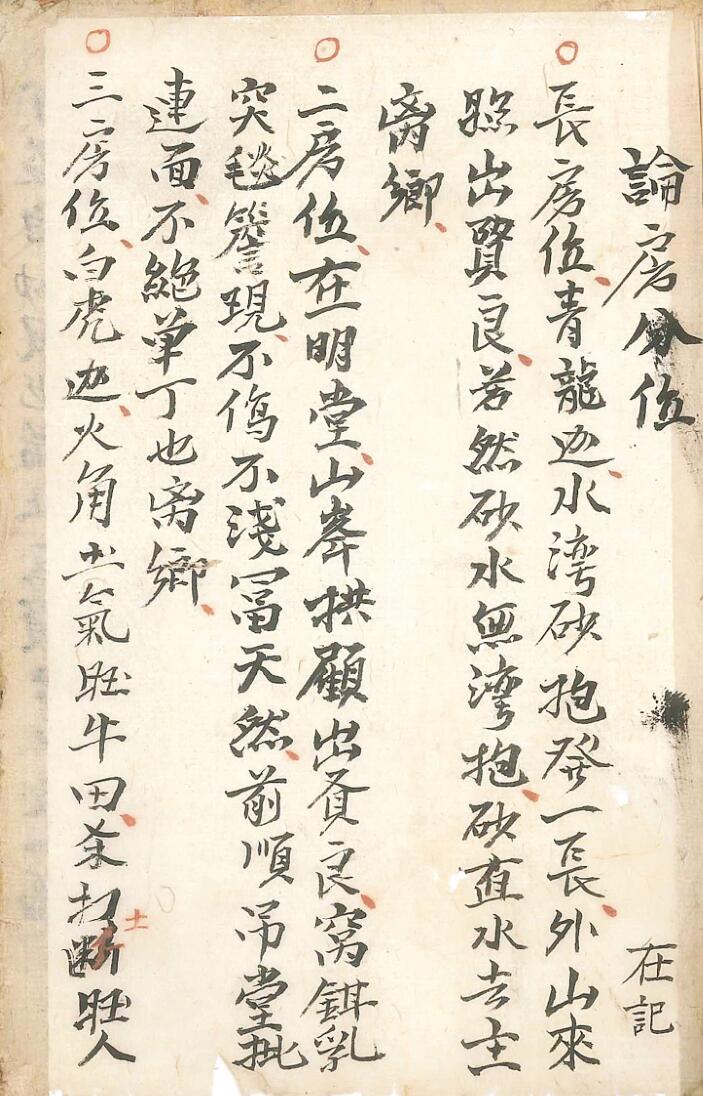 論房分位
在記
長房位青龍边水湾砂抱發一長外山來
照出賢良若然砂水無湾抱砂直水去主
离鄉
二房位在明堂山峯拱顧出資良窝鉗乳
突毯簷現不傷不淺冨天然前順吊堂批
連面不絶单丁也离鄉
三房位白虎边火角 氣旺牛田 打断旺人
士